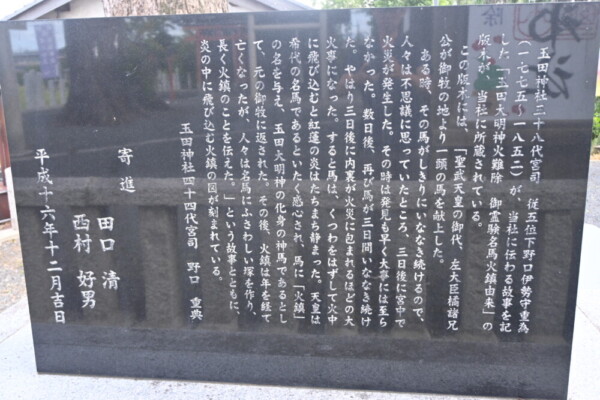 玉田神社二十八代宮司 従五位下野口伊勢守重為
（一七七五～一八五二）が、当社に伝わる故事を記
した「玉田大明神火難除 御霊験名馬火鎮由来」の
版木が、当社に所蔵されている。
この版木には、「聖武天皇の御代、左大臣橘諸兄
公が御牧の地より一頭の馬を献上した。
ある時、その馬がしきりにいななき続けるので、
人々は不思議に思っていたところ、三日後に宮中で
火災が発生した。その時は発見も早く大事には至ら
なかった。数日後、再び馬が三日間いななき続け
た。やはり三日後に内裏が火災に包まれるほどの大
火事になった。すると馬は、くつわをはずして火中
に飛び込むと紅蓮の炎はたちまち静まった。天皇は
希代の名馬であるといたく感心され、馬に「火鎮」
の名を与え、玉田大明神の化身の神馬であるとし
て、元の御牧に返された。その後、火鎮は年を経て
亡くなったが、人々は名馬にふさわしい塚を作り、
長く火鎮のことを伝えた。」という故事とともに、
炎の中に飛び込む火鎮の図が刻まれている。
玉田神社四十四代宮司 野口 重典
寄進 田口 清
西村 好男
平成十六年十二月吉日